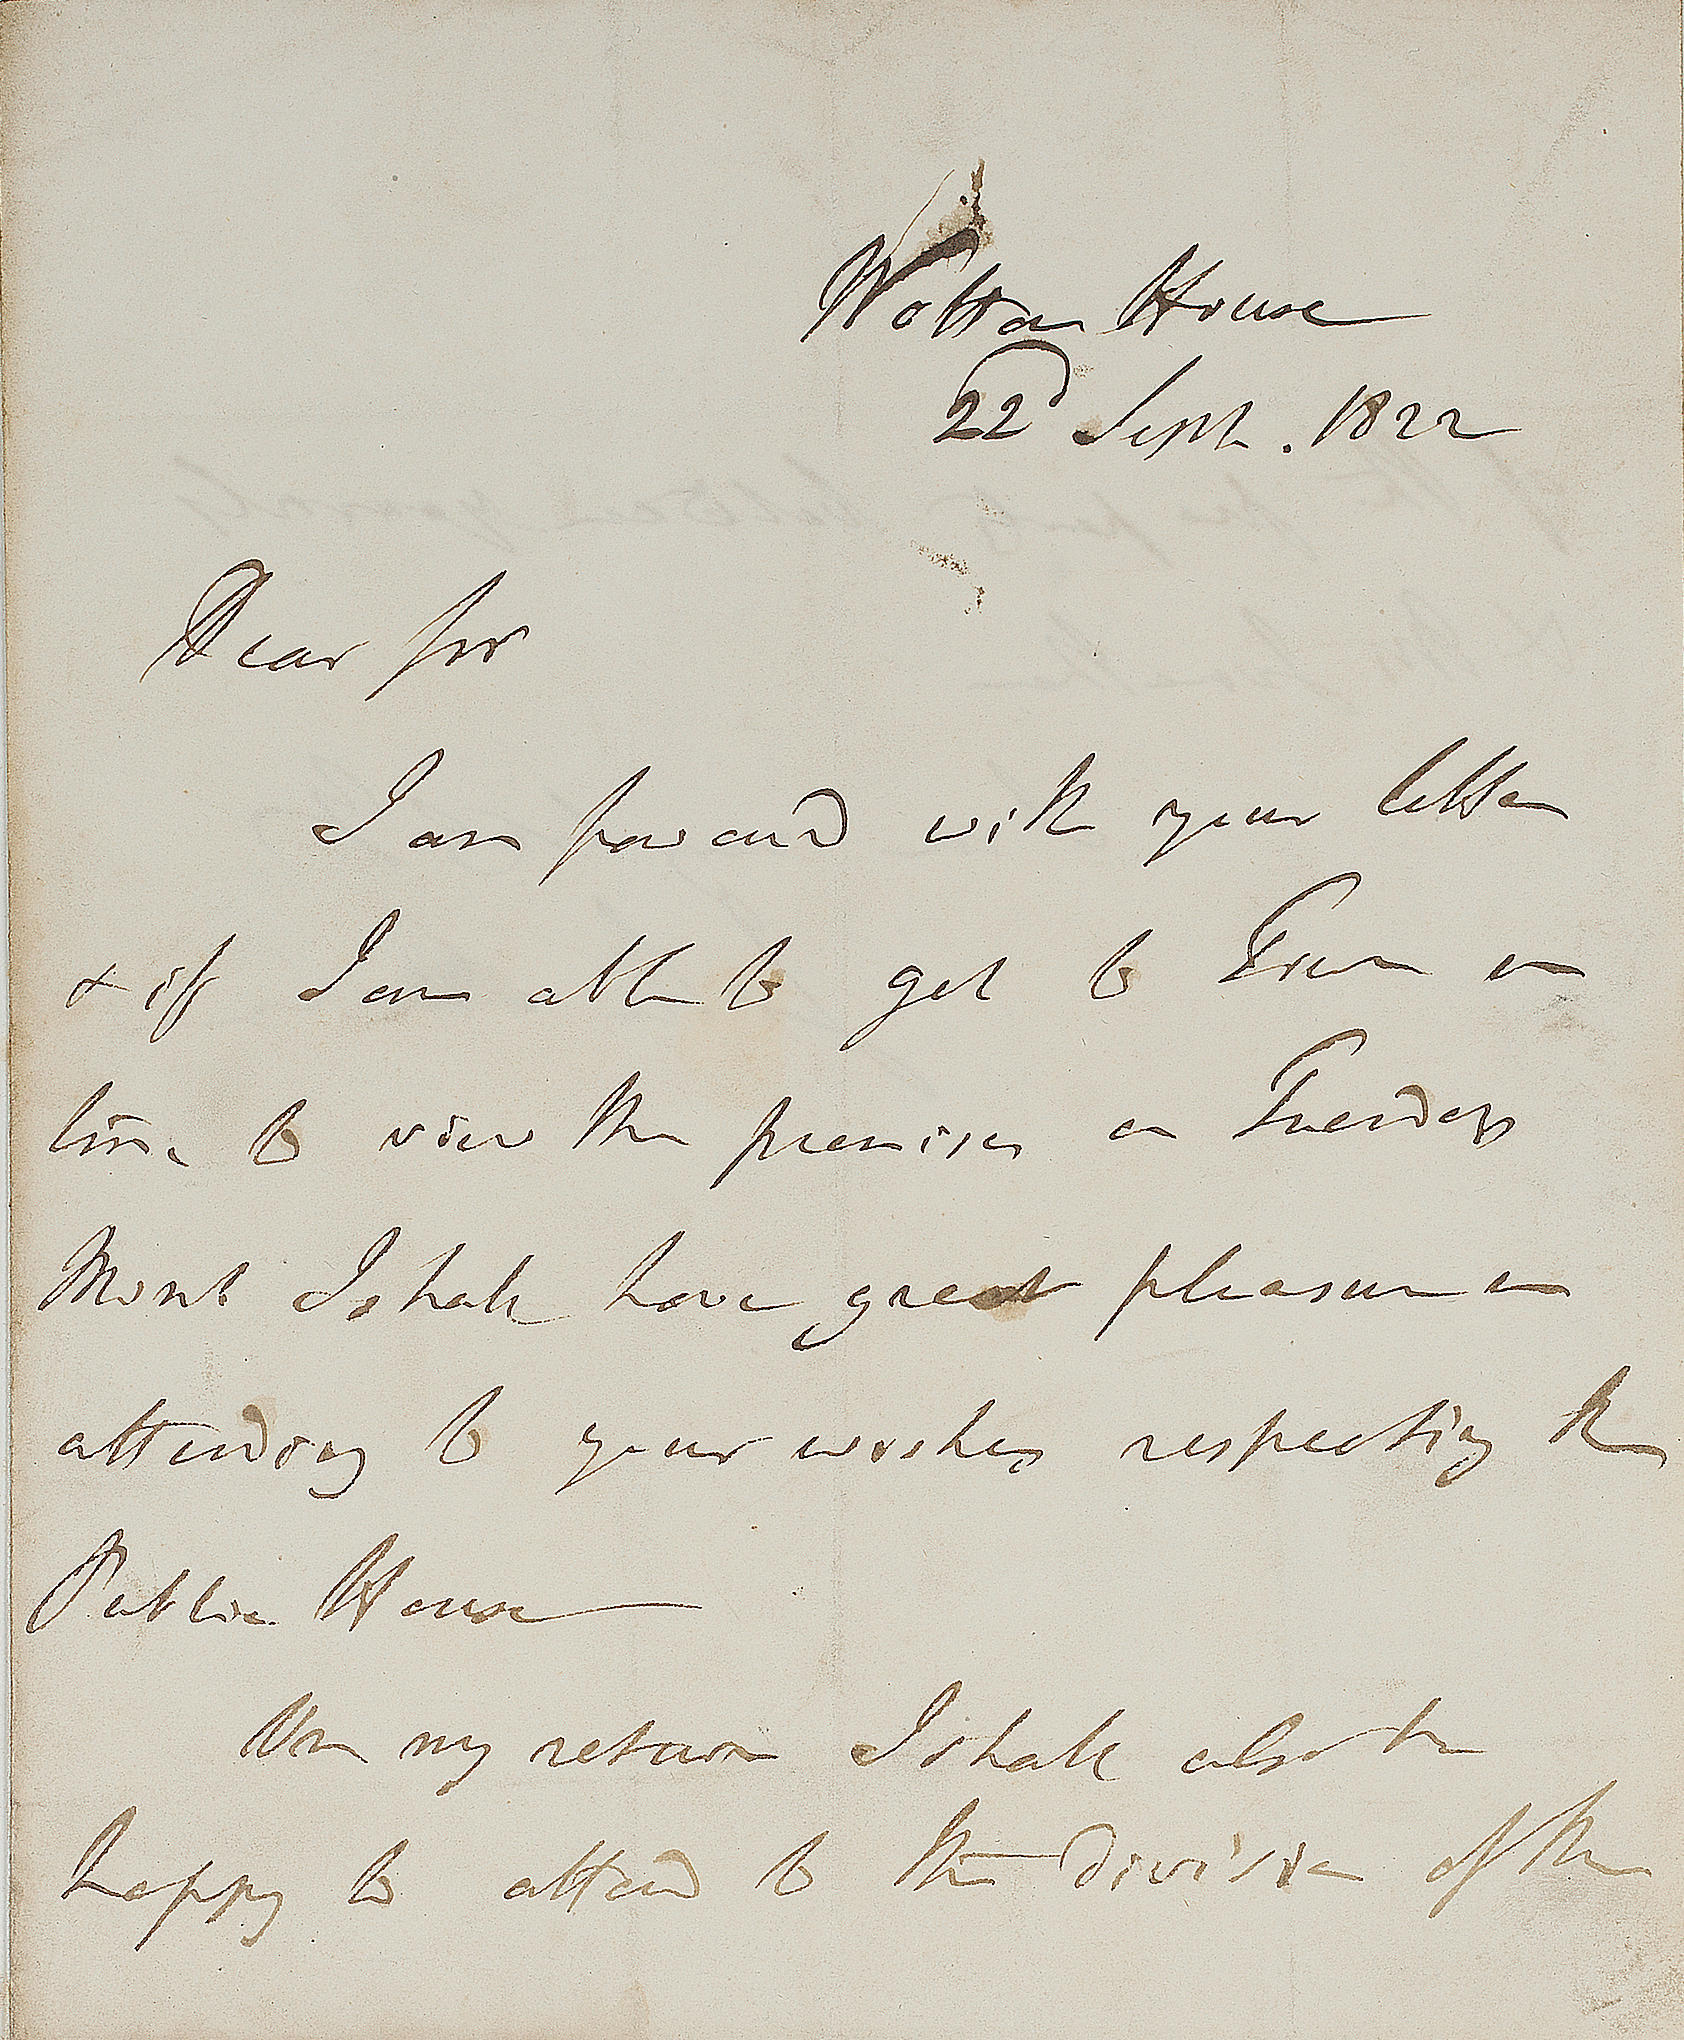 Wotton House
22d Sept. 1822
Dear Sir
I am favoured with your letter
& if I am able to get to Town in
time to view the premises on Tuesday
I shall have great pleasure in
attending to your wishes respecting the
Public House
On my return I shall also be
happy to attend to the division of the